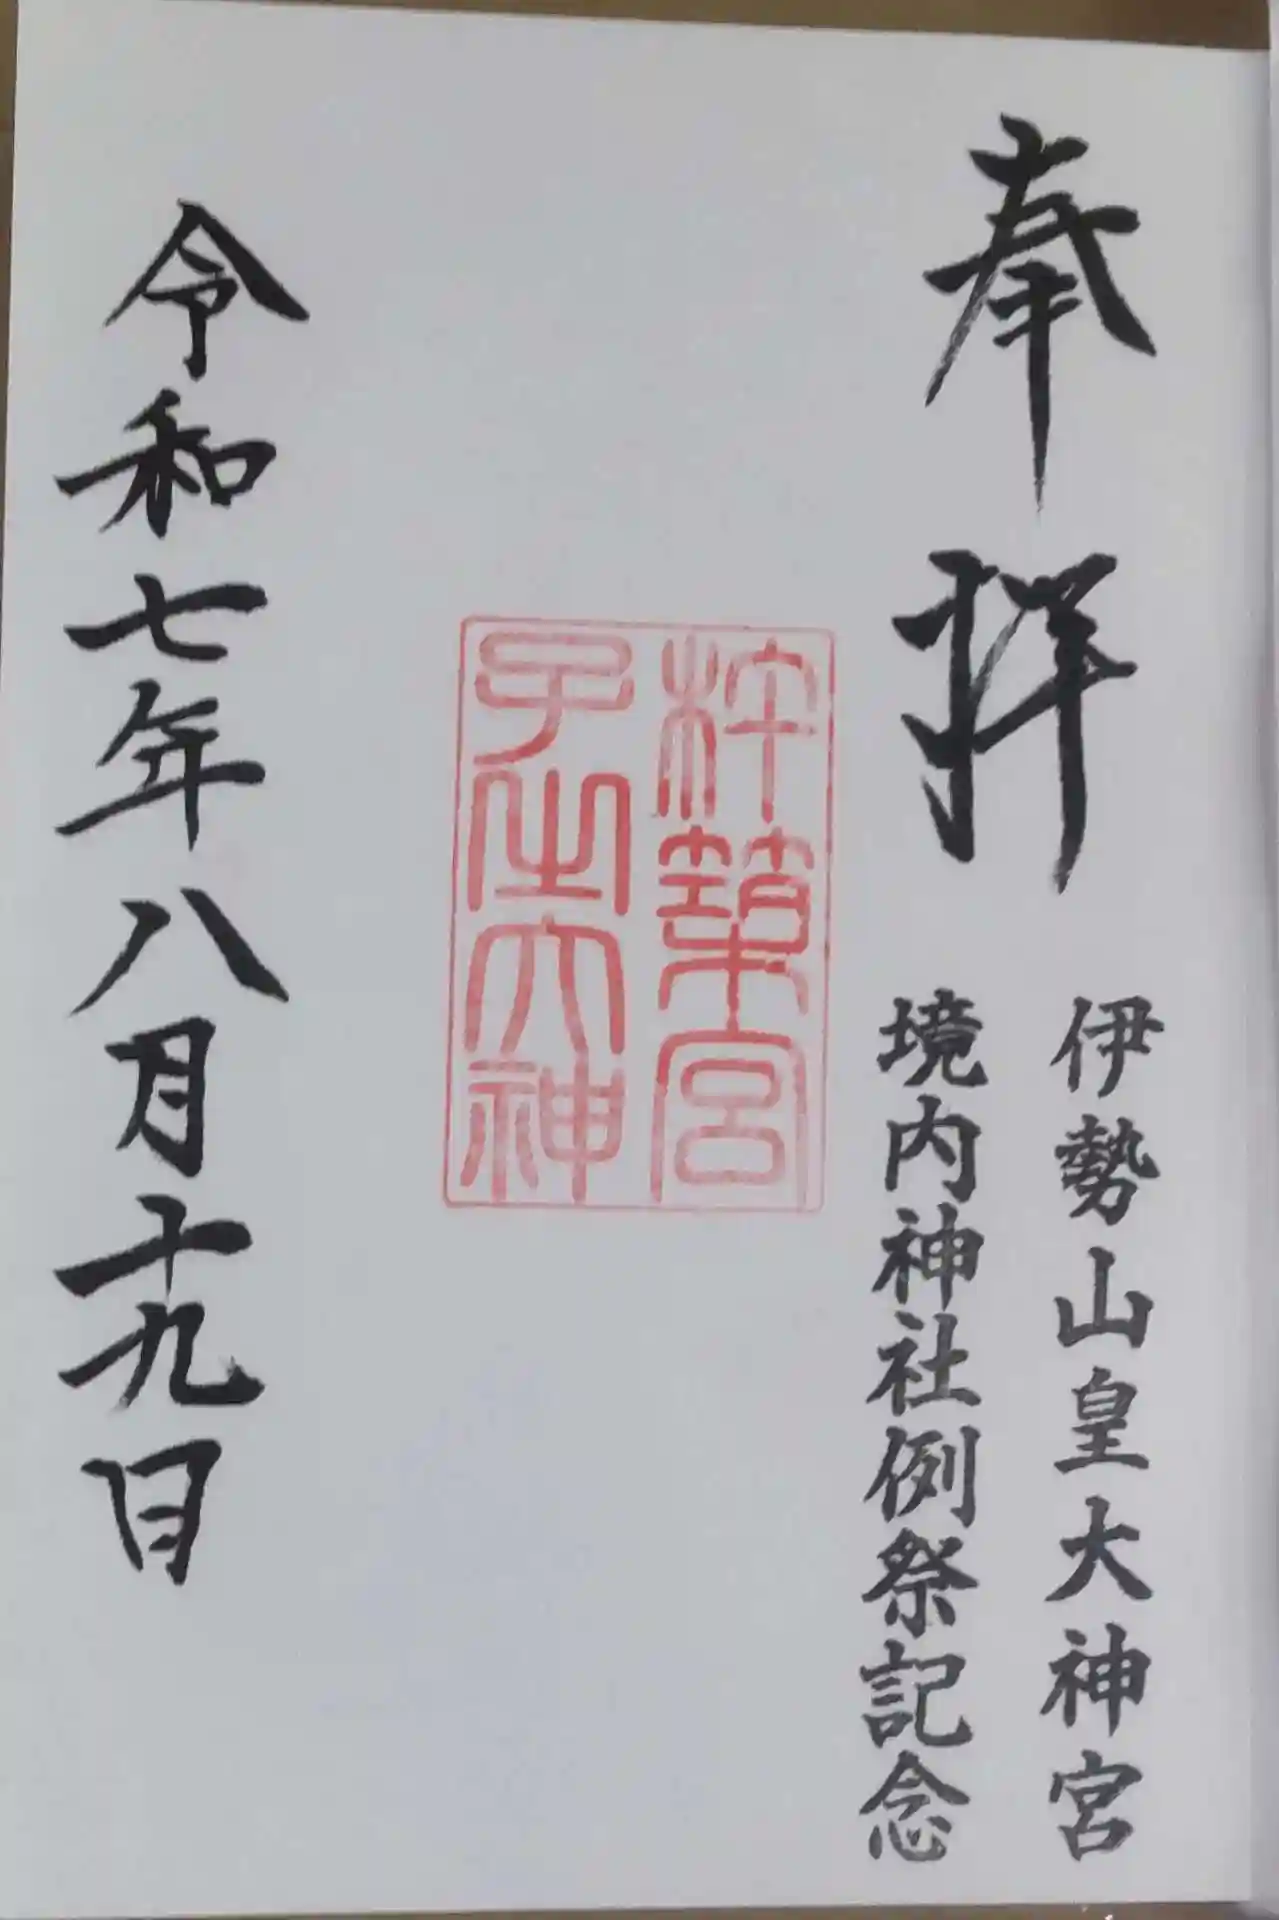 奉拝
伊勢山皇大神宮
境内神社例祭記念
杵築宮
子之大神
令和七年八月十九日